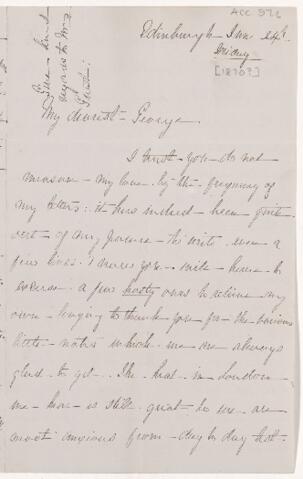 ACC 972
Edinburgh June 24th
Friday
[1870?]
Give kind
regards to Mrs
My dearest George
I trust you do not
measure my love by the frequency of
my letters: it has indeed been quite
out of my power to write even a
few lines.
excuse a few hasty ones to relieve my
own longing to thank you for the various
little notes which we are always
glad to get. The heat in London
we hear is still great & we are
most anxious from day to day that